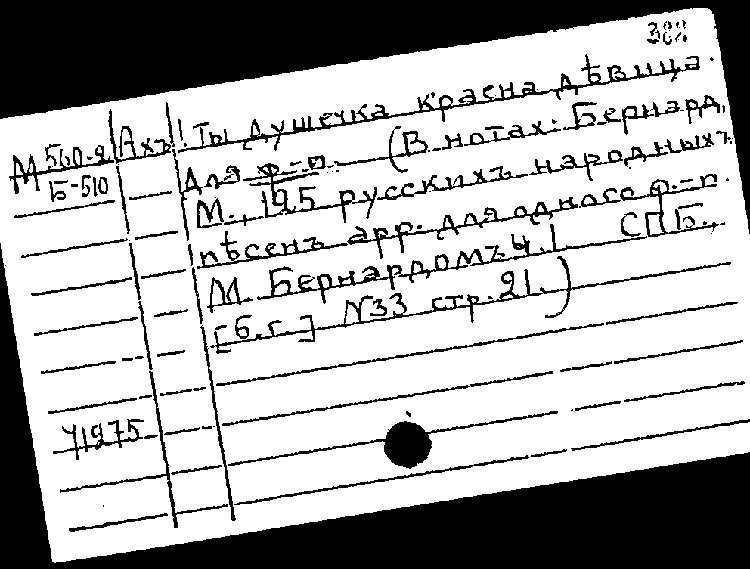 М 560-2 Ахъ! Ты душечка красна дѣвица.
Б-510 Для ф-п. (В нотах: Бернард,
М., 125 русскихъ народныхъ
пѣсенъ арр. для одного ф.-п.
М. Бернардомъ ч. I СПБ.,
[б.г.] N33 стр. 21.)
41275